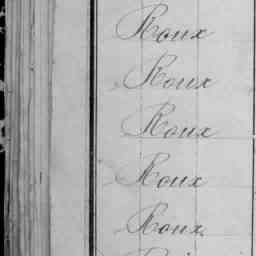 Roux
Roux
Roux
Roux
Roux